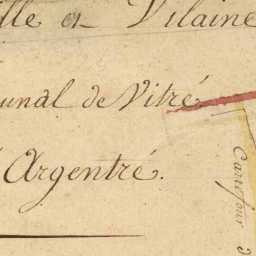 ille et Vilaine
unal de Vitré
Argentré.
Carrefour